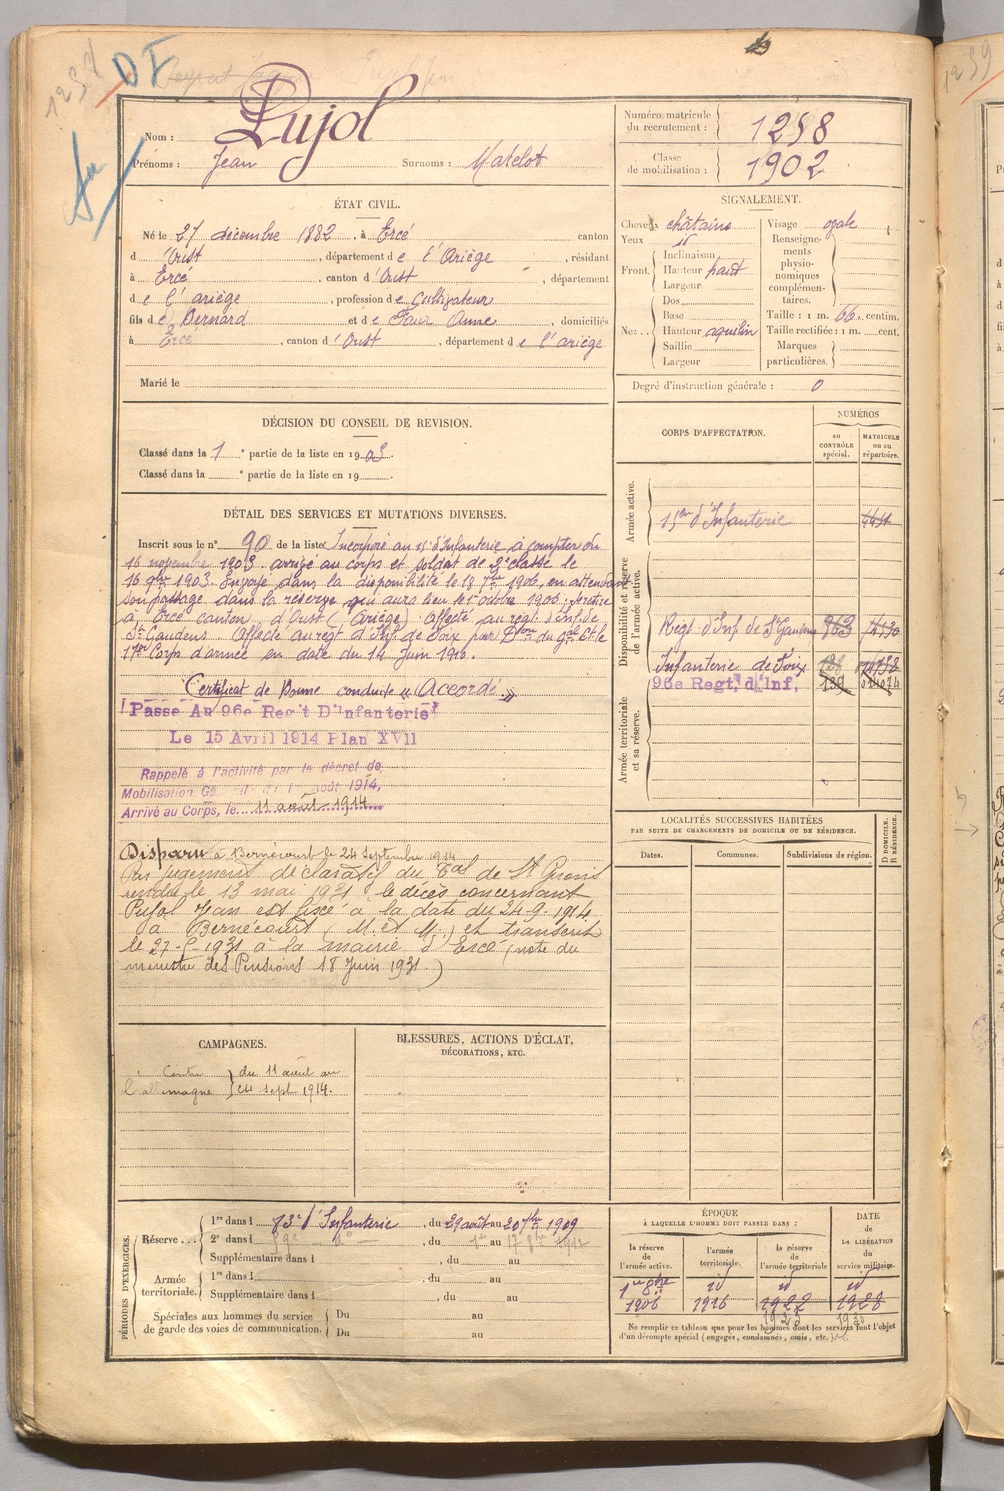 1258
DF
Nom : Pujol
Prénoms : Jean Surnoms : Matelot
Numéro matricule du recrutement : 1258
Classe de mobilisation : 1902
ÉTAT CIVIL.
Né le 27 décembre 1882, à Ercé canton
d'Oust, département de l'Ariège, résidant
à Ercé, canton d'Oust, département
de l'ariège, profession de Cultivateur
fils de Bernard et de Faur Anne, domiciliés
à Ercé, canton d'Oust, département de l'ariège
Marié le
SIGNALEMENT.
Cheveux châtains
Yeux id
Front. Inclinaison
Hauteur haut
Largeur
Nez Dos
Base
Hauteur aquilin
Saillie
Largeur
Visage ovale
Renseignements physionomiques complémentaires.
Taille : 1 m. 66. centim.
Taille rectifiée : 1 m. cent.
Marques particulières.
Degré d'instruction générale : 0
DÉCISION DU CONSEIL DE REVISION.
Classé dans la 1e partie de la liste en 1903.
Classé dans la e partie de la liste en 19 .
DÉTAIL DES SERVICES ET MUTATIONS DIVERSES.
Inscrit sous le n° 90 de la liste Incorporé au 15e d'Infanterie à compter du
16 novembre 1903. arrivé au corps et soldat de 2e classe le
16 9bre 1903. Envoyé dans la disponibilité le 18 7bre 1906, en attendant
son passage dans la réserve qui aura lieu le 1er octobre 1906; se retire
à Ercé canton d'Oust (Ariège) affecté au regt d'Inf. de
St Gaudens. Affecté au regt d'Inf. de Foix par Don du gal Ct le
17e Corps d'armée en date du 14 Juin 1910.
Certificat de Bonne conduite « Accordé »
Passe Au 96e Regit D'Infanterie
Le 15 Avril 1914 Plan XVII
Rappelé à l'activité par le décret de
Mobilisation Gé août 1914,
Arrivé au Corps, le 11 août 1914
Disparu à Bernécourt le 24 septembre 1914
Par jugement déclaratif du Tal de St Girons
rendu le 13 mai 1931 le décès concernant
Pujol Jean est fixé à la date du 24-9-1914
à Bernécourt (M. et M.) et transcrit
le 27-5-1931 à la mairie d'Ercé (note du
ministre des Pensions 18 Juin 1931.)
CORPS D'AFFECTATION.
NUMÉROS
au CONTRÔLE spécial.
MATRICULE ou au répertoire.
Armée active.
15em d'Infanterie
Disponibilité et réserve de l'armée active.
Regt. d'Inf de St Gaudens 763
Infanterie de Foix
96e Regt, d'Inf, 139 014074
Armée territoriale et sa réserve.
LOCALITÉS SUCCESSIVES HABITÉES
PAR SUITE DE CHANGEMENTS DE DOMICILE OU DE RÉSIDENCE.
Dates. Communes. Subdivisions de région. D DOMICILE. R RÉSIDENCE.
CAMPAGNES.
Contre l'allemagne } du 11 août au
24 sept 1914.
BLESSURES, ACTIONS D'ÉCLAT,
DÉCORATIONS, ETC.
PÉRIODES D'EXERCICES.
Réserve 1re dans l 73e d'Infanterie, du 29 août au 20 7bre 1909
2e dans l , du 1er au 17 1912
Supplémentaire dans l , du au
Armée territoriale. 1re dans l , du au
Supplémentaire dans l , du au
Spéciales aux hommes du service de garde des voies de communication. Du au
Du au
ÉPOQUE
À LAQUELLE L'HOMME DOIT PASSER DANS :
DATE de LA LIBÉRATION du service militaire.
la réserve de l'armée active. l'armée territoriale. la réserve de l'armée territoriale
1er 8bre id id id
1906 1916 1922 1928
Ne remplir ce tableau que pour les hommes dont les services font l'objet
d'un décompte spécial (engagés, condamnés, omis, etc.)